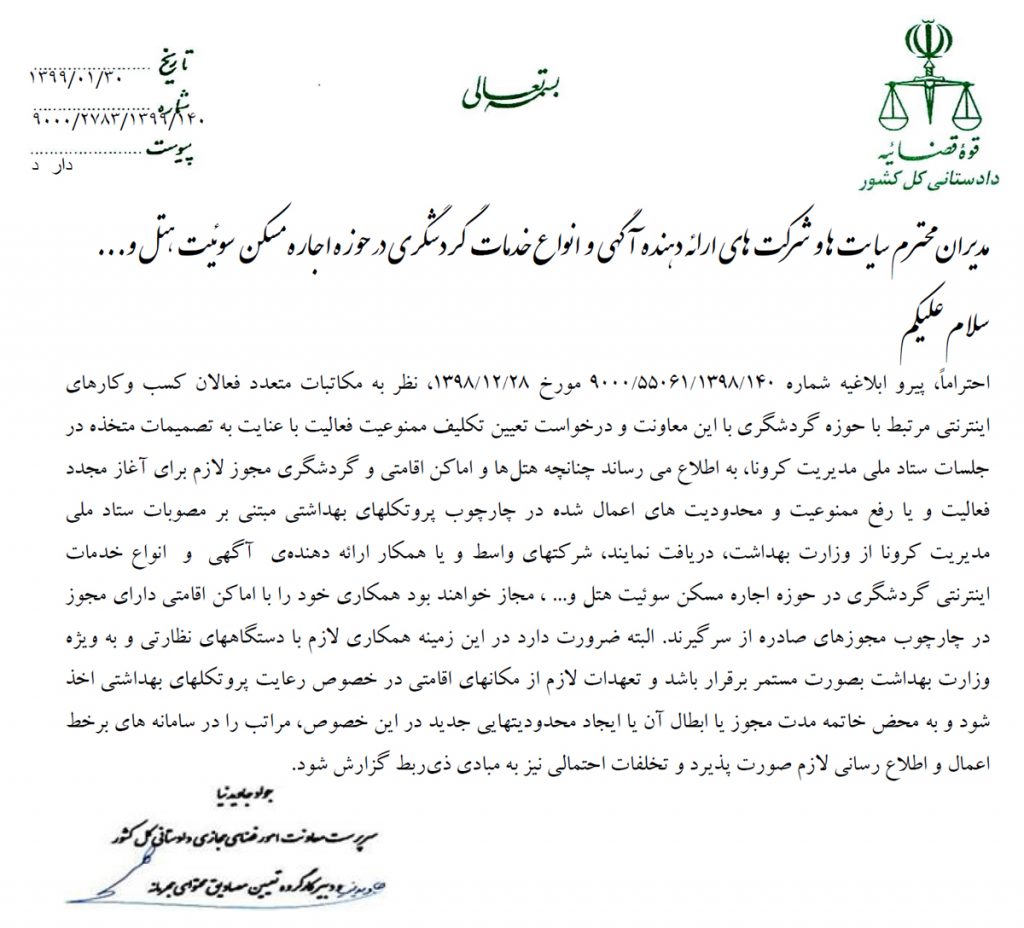 بسمه تعالی
قوهٔ قضائیه
دادستانی کل کشور
تاریخ ۱۳۹۹/۰۱/۳۰
شماره ۹۰۰۰/۲۷۸۳/۱۳۹۹/۱۴۰
پیوست
دار د
مدیران محترم سایت ها و شرکت های ارائه دهنده آگهی و انواع خدمات گردشگری در حوزه اجاره مسکن سوئیت هتل و...
سلام علیکم
احتراماً، پیرو ابلاغیه شماره ۹۰۰۰/۵۵۰۶۱/۱۳۹۸/۱۴۰ مورخ ۱۳۹۸/۱۲/۲۸، نظر به مکاتبات متعدد فعالان کسب وکارهای
اینترنتی مرتبط با حوزه گردشگری با این معاونت و درخواست تعیین تکلیف ممنوعیت فعالیت با عنایت به تصمیمات متخذه در
جلسات ستاد ملی مدیریت کرونا، به اطلاع می رساند چنانچه هتل‌ها و اماکن اقامتی و گردشگری مجوز لازم برای آغاز مجدد
فعالیت و یا رفع ممنوعیت و محدودیت های اعمال شده در چارچوب پروتکلهای بهداشتی مبتنی بر مصوبات ستاد ملی
مدیریت کرونا از وزارت بهداشت، دریافت نمایند، شرکتهای واسط و یا همکار ارائه دهنده‌ی آگهی و انواع خدمات
اینترنتی گردشگری در حوزه اجاره مسکن سوئیت هتل و... ، مجاز خواهند بود همکاری خود را با اماکن اقامتی دارای مجوز
در چارچوب مجوزهای صادره از سرگیرند. البته ضرورت دارد در این زمینه همکاری لازم با دستگاههای نظارتی و به ویژه
وزارت بهداشت بصورت مستمر برقرار باشد و تعهدات لازم از مکانهای اقامتی در خصوص رعایت پروتکلهای بهداشتی اخذ
شود و به محض خاتمه مدت مجوز یا ابطال آن یا ایجاد محدودیتهایی جدید در این خصوص، مراتب را در سامانه های برخط
اعمال و اطلاع رسانی لازم صورت پذیرد و تخلفات احتمالی نیز به مبادی ذی‌ربط گزارش شود.
جواد جاویدنیا
سرپرست معاونت امور فضای مجازی دادستانی کل کشور
و دبیر کارگروه تعیین مصادیق محتوای مجرمانه